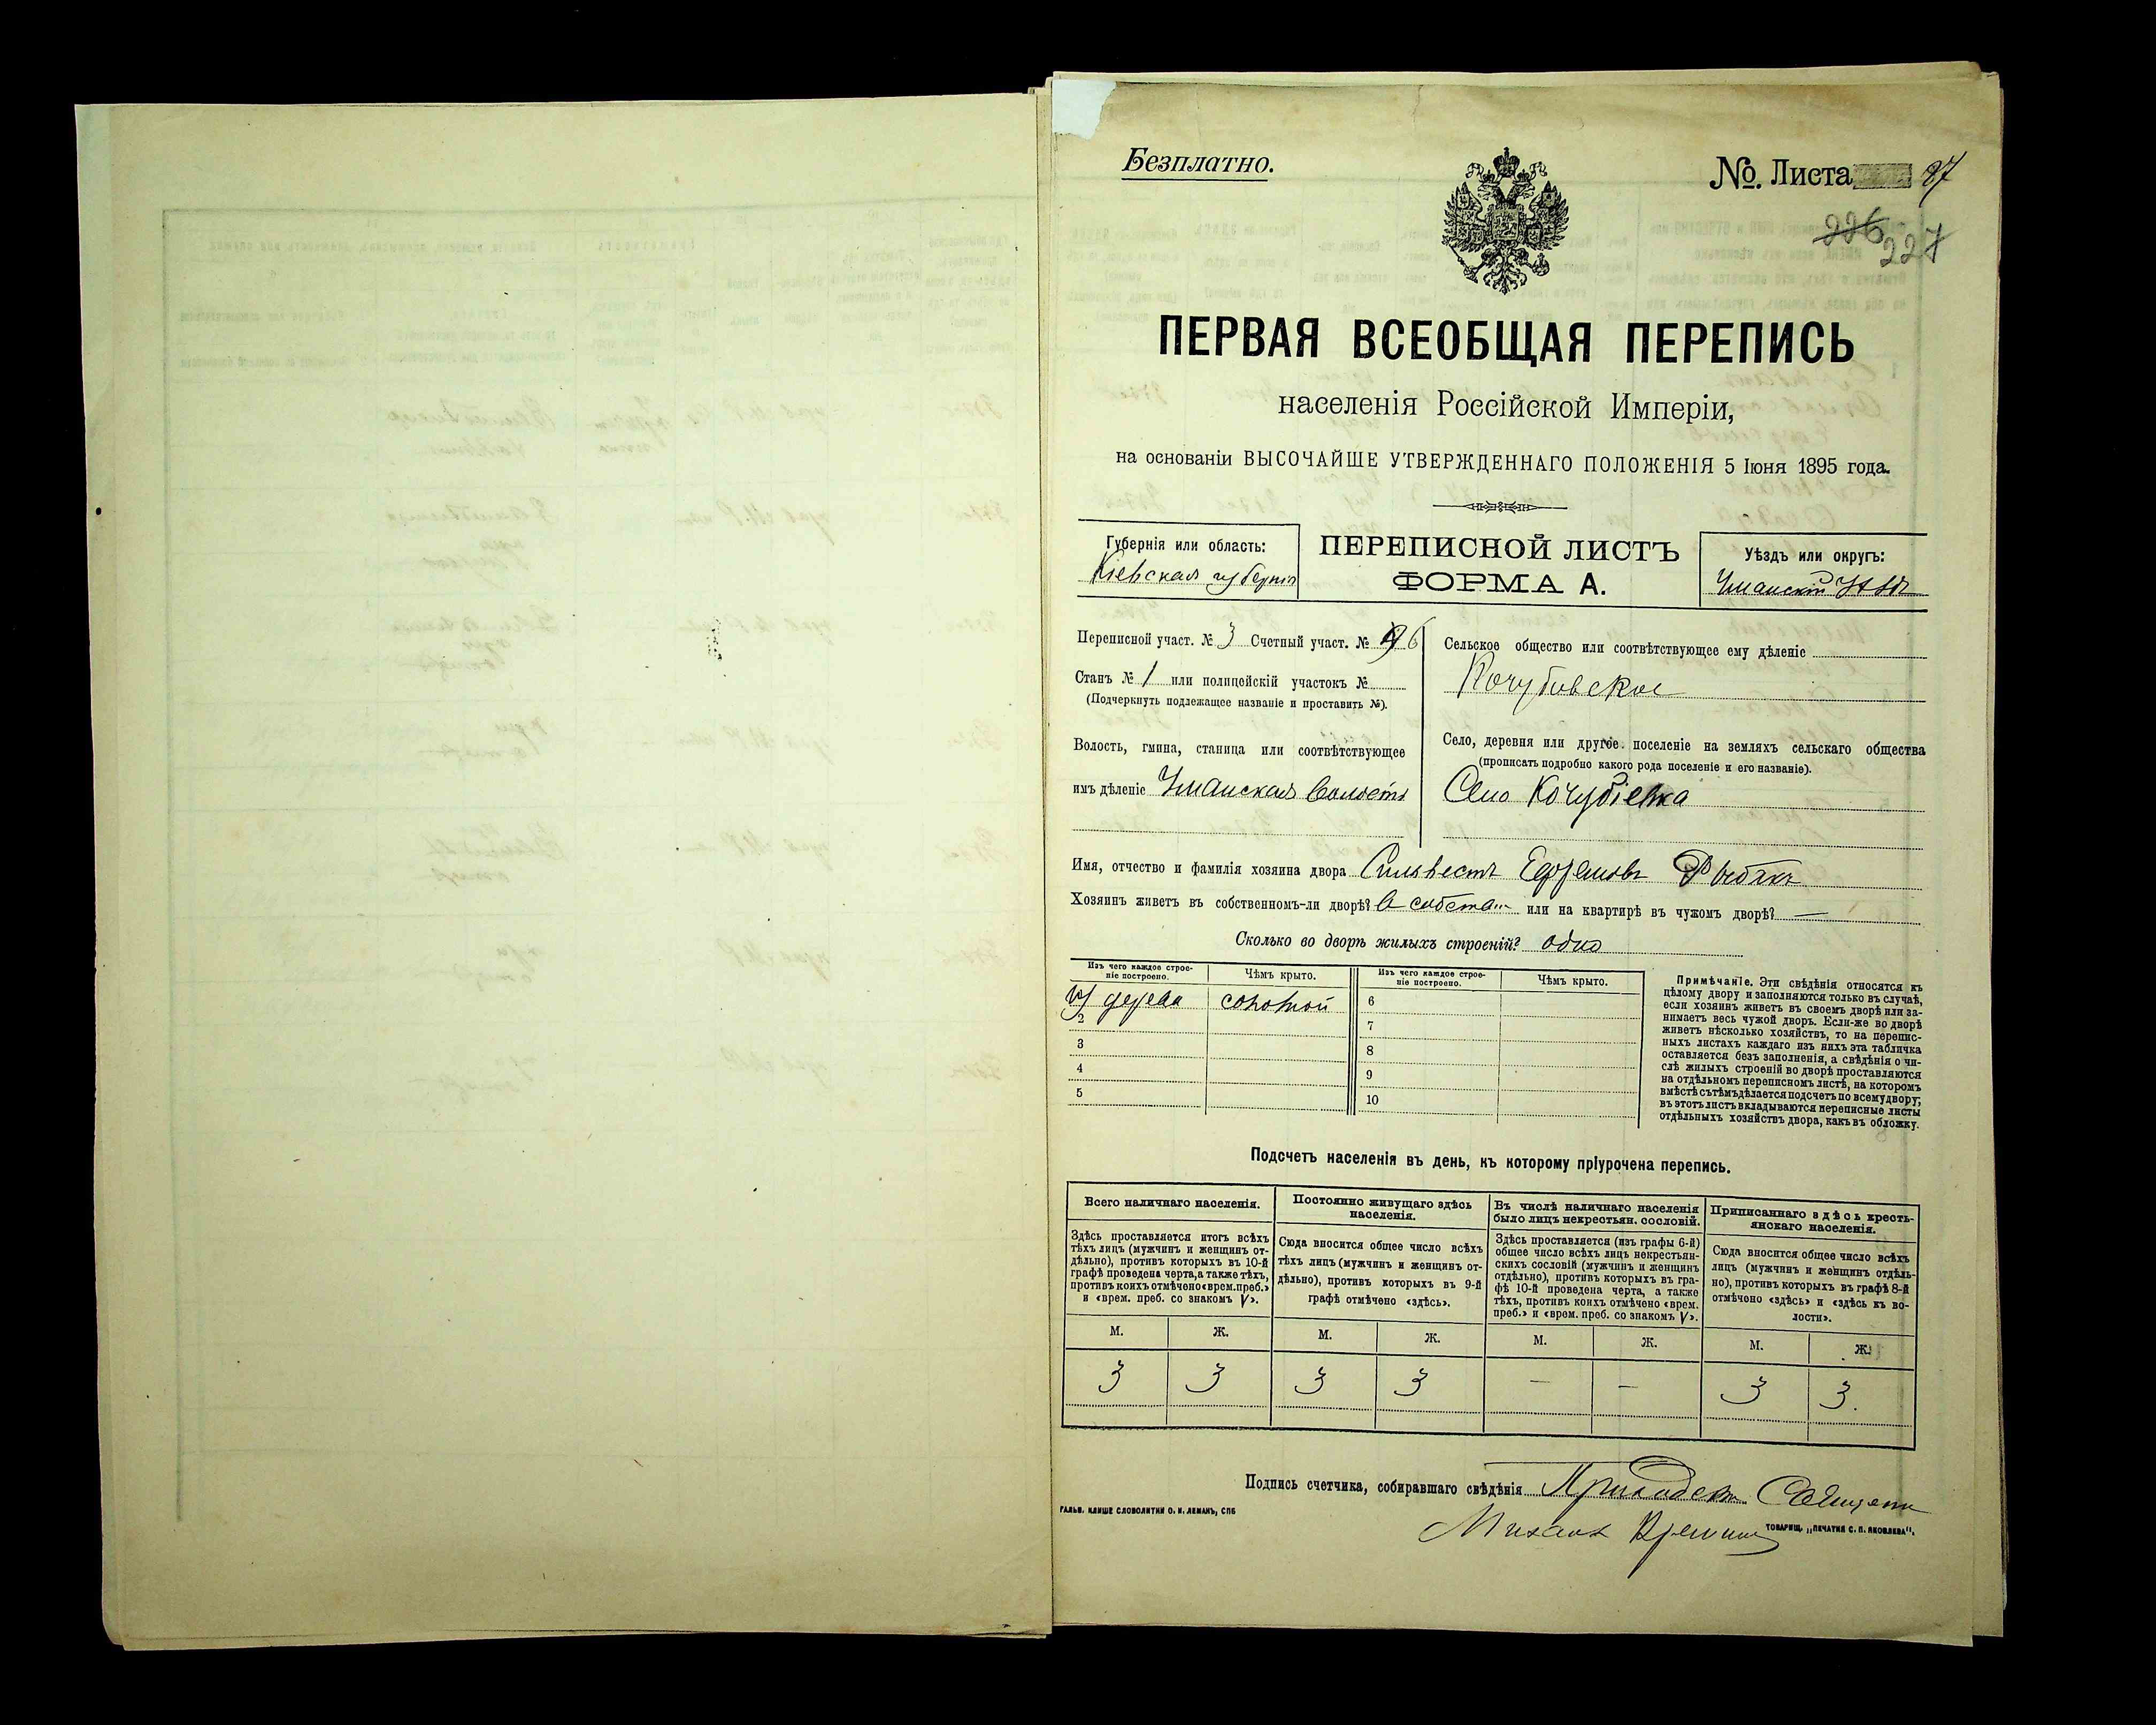 Безплатно.
№ Листа 87
226 227
ПЕРВАЯ ВСЕОБЩАЯ ПЕРЕПИСЬ
населенія Россійской Имперіи,
на основаніи ВЫСОЧАЙШЕ УТВЕРЖДЕННАГО ПОЛОЖЕНІЯ 5 Іюня 1895 года.
Губернія или область:
Кіевская губернія
ПЕРЕПИСНОЙ ЛИСТЪ
ФОРМА А.
Уѣздъ или округъ:
Уманскій
Переписной участ. № 3 Счетный участ. № 6
Станъ № 1 или полицейскій участокъ №
(Подчеркнуть подлежащее названіе и проставить №).
Волость, гмина, станица или соотвѣтствующее
имъ дѣленіе Уманская волость
Сельское общество или соотвѣтствующее ему дѣленіе
Кочубіевское
Село, деревня или другое поселеніе на земляхъ сельскаго общества
(прописать подробно какого рода поселеніе и его названіе).
Село Кочубіевка
Имя, отчество и фамилія хозяина двора Сильвестъ Ефремовъ Рыбакъ
Хозяинъ живетъ въ собственномъ-ли дворѣ? В собств или на квартирѣ въ чужомъ дворѣ? —
Сколько во дворѣ жилыхъ строеній? одно
Изъ чего каждое строе-
ніе построено.
Чѣмъ крыто.
Изъ чего каждое строе-
ніе построено.
Чѣмъ крыто.
дерева соломой 6
2 7
3 8
4 9
5 10
Примѣчаніе. Эти свѣдѣнія относятся къ
цѣлому двору и заполняются только въ случаѣ,
если хозяинъ живетъ въ своемъ дворѣ или за-
нимаетъ весь чужой дворъ. Если-же во дворѣ
живетъ нѣсколько хозяйствъ, то на перепис-
ныхъ листахъ каждаго изъ нихъ эта табличка
оставляется безъ заполненія, а свѣдѣнія о чи-
слѣ жилыхъ строеній во дворѣ проставляются
на отдѣльномъ переписномъ листѣ, на которомъ
вмѣстѣ съ тѣмъ дѣлается подсчетъ по всему двору;
въ этотъ листъ вкладываются переписные листы
отдѣльныхъ хозяйствъ двора, какъ въ обложку.
Подсчетъ населенія въ день, къ которому пріурочена перепись.
Всего наличнаго населенія.
Здѣсь проставляется итогъ всѣхъ
тѣхъ лицъ (мужчинъ и женщинъ от-
дѣльно), противъ которыхъ въ 10-й
графѣ проведена черта, а также тѣхъ,
противъ коихъ отмѣчено «врем. преб.»
и «врем. преб. со знакомъ V».
Постоянно живущаго здѣсь
населенія.
Сюда вносится общее число всѣхъ
тѣхъ лицъ (мужчинъ и женщинъ от-
дѣльно), противъ которыхъ въ 9-й
графѣ отмѣчено «здѣсь».
Въ числѣ наличнаго населенія
было лицъ некрестьян. сословій.
Здѣсь проставляется (изъ графы 6-й)
общее число всѣхъ лицъ некрестьян-
скихъ сословій (мужчинъ и женщинъ
отдѣльно), противъ которыхъ въ гра-
фѣ 10-й проведена черта, а также
тѣхъ, противъ коихъ отмѣчено «врем.
преб.» и «врем. преб. со знакомъ V».
Приписаннаго здѣсь кресть-
янскаго населенія.
Сюда вносится общее число всѣхъ
лицъ (мужчинъ и женщинъ отдѣль-
но), противъ которыхъ въ графѣ 8-й
отмѣчено «здѣсь» и «здѣсь къ во-
лости».
М. Ж. М. Ж. М. Ж. М. Ж.
3 3 3 3 — — 3 3.
Подпись счетчика, собиравшаго свѣдѣнія
Михаилъ
ГАЛЬВ. КЛИШЕ СЛОВОЛИТНИ О. И. ЛЕМАНЪ, СПБ
ТОВАРИЩ. „ПЕЧАТНЯ С. П. ЯКОВЛЕВА".